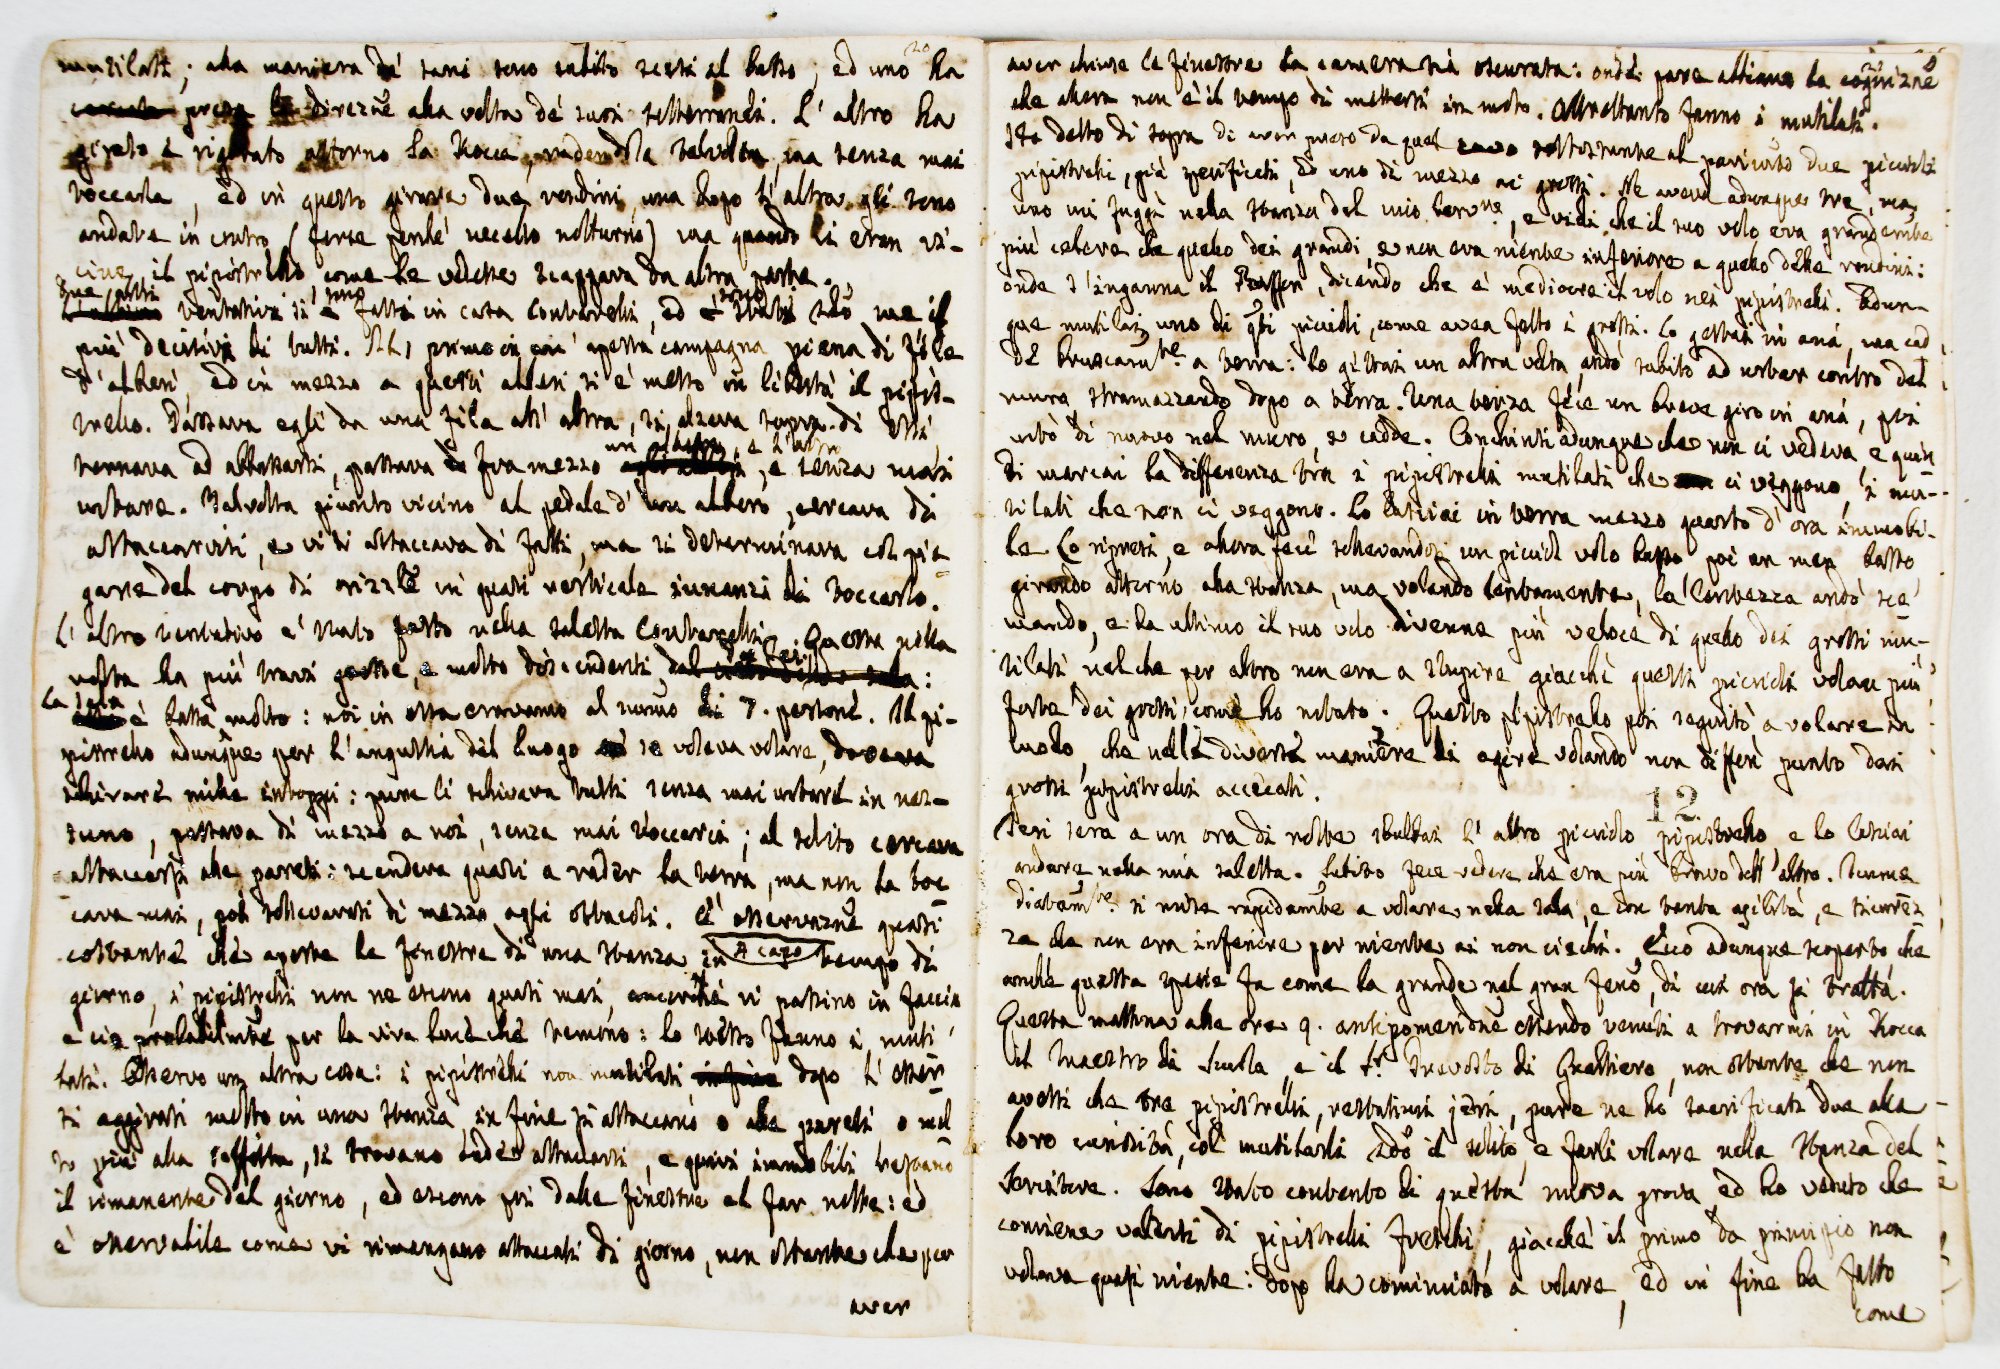 20
mutilati; alla maniera de' sani sono subito scesi al basso, ed uno ha
presa la direzne alla volta de' suoi sotterranei. L' altro ha
girato e rigirato attorno la Rocca, radendola talvolta, ma senza mai
toccarla, ed in questo girare due rondini, una dopo l' altra gli sono
andate in contro (forse perché uccello notturno) ma quando li eran vi-
cine, il pipistrello come le vedesse scappava da altra parte.
Due altri tentativi si sono fatti in casa Contarelli, ed sono stati sdo me il
più decisivi di tutti. Il primo in un' aperta campagna piena di file
d' alberi, ed in mezzo a questi alberi si è messo in libertà il pipis-
trello. Passava egli da una fila all' altra, si alzava sopra di essi
tornava ad abbassarsi, passava fra mezzo un albero, e l' altro, e senza mai
urtare. Talvolta giunto vicino al pedale d' un albero, cercava di
attaccarvisi, e vi si attaccava di fatti, ma si determinava col pie-
garsi del corpo di orizzle in quasi verticale innanzi di toccarlo.
L' altro tentativo è stato fatto nella saletta Contarelli. Questa nella
volta ha più travi grosse, e molto discendenti:
La sala è bassa molto: noi in essa eravamo al numo di 7. persone. Il pi-
pistrello adunque per l' angustia del luogo se voleva volare, doveva
schivare mille intoppi: pure li schivava tutti senza mai urtare in nes-
suno, passava di mezzo a noi, senza mai toccarci; al solito cercava
attaccarsi alle pareti: scendeva quasi a rader la terra, ma non la toc
cava mai, poi sollevavasi di mezzo agli ostacoli. È osservazne quasi
costante che aperte le finestre di una stanza in A capo tempo di
giorno, i pipistrelli non ne escono quasi mai, ancorché vi passino in faccia
e ciò probabilmte per la viva luce che temono: lo stesso fanno i muti
lati. Osservo un' altra cosa: i pipistrelli non mutilati dopo l' esser
si aggirati molto in una stanza in fine si attaccano o alle pareti o mol
to più alla soffitta, si trovano sede attaccarsi, e quivi immobili restano
il rimanente del giorno, ed escono poi dalle finestre al far notte: ed
è osservabile come vi rimangano attaccati di giorno, non ostante che per
aver
aver chiuse le finestre la camera sia oscurata: onde pare abbiano la cognizne
che allora non è il tempo di mettersi in moto. Altrettanto fanno i mutilati.
Ho detto di sopra di aver preso da quel cavo sottostante al pavimto due piccoli
pipistrelli, già specificati, ed uno di mezzo ai grossi. Ne aveva adunque tre, ma
uno mi fuggì nella stanza del mio, e vidi che il suo volo era grandemte
più celere che quello dei grandi, e non era niente inferiore a quello delle rondini:
onde s' inganna il Buffon, dicendo che è mediocre il volo nei pipistrelli. Adun-
que mutilai uno di qti piccioli, come avea fatto i grossi. Lo gettai in aria, ma cad
de bruscamte a terra: lo gittai un altra volta, andò subito ad urtar contro del
muro stramazzando dopo a terra. Una terza fece un breve giro in aria, poi
urtò di nuovo nel muro e cadde. Conchiusi adunque che non ci vedeva, e quin
di marcai la differenza tra i pipistrelli mutilati che ci veggono, i mu-
tilati che non ci veggono. Lo lasciai in terra mezzo quarto d' ora immobi-
le. Lo ripresi, e allora fece sollevandosi un picciol volo basso poi un men basso
girando attorno alla stanza, ma volando lentamente, la lentezza andò sce
mando, e da ultimo il suo volo divenne più veloce di quello dei grossi mu-
tilati, nel che per altro non era a stupire giacchè questi piccioli volan più
forte dei grossi, come ho notato. Questo pipistrello poi seguitò a volare in
modo, che nelle diverse maniere di agire volando non differì punto dai
grossi pipistrelli accecati.
12
Jeri sera a un ora di notte sbulbai l' altro picciolo pipistrello, e lo lasciai
andare nella mia saletta. Subito fece vedere che era più bravo dell' altro. Imme
diatamte si mise rapidamte a volare nella sala, e con tanta agilità, e sicurez
za che non era inferiore per niente ai non ciechi. Ecco adunque scoperto che
anche questa specie fa come la grande nel gran feno, di cui ora si tratta.
Questa mattina alle ore 9. antipomeridne essendo venuti a trovarmi in Rocca
il Maestro di Scuola, e il Sr. Prevosto di Gualtiero, non ostante che non
avessi che tre pipistrelli, restatimi jeri, pure ne ho sacrificati due alla
loro curiosità, col mutilarli sdo il solito, e farli volare nella stanza del
Servitore. Sono stato contento di questa nuova prova ed ho veduto che
conviene valersi di pipistrelli freschi, giacchè il primo da principio non
volava quasi niente: dopo ha cominciato a volare, ed in fine ha fatto
come